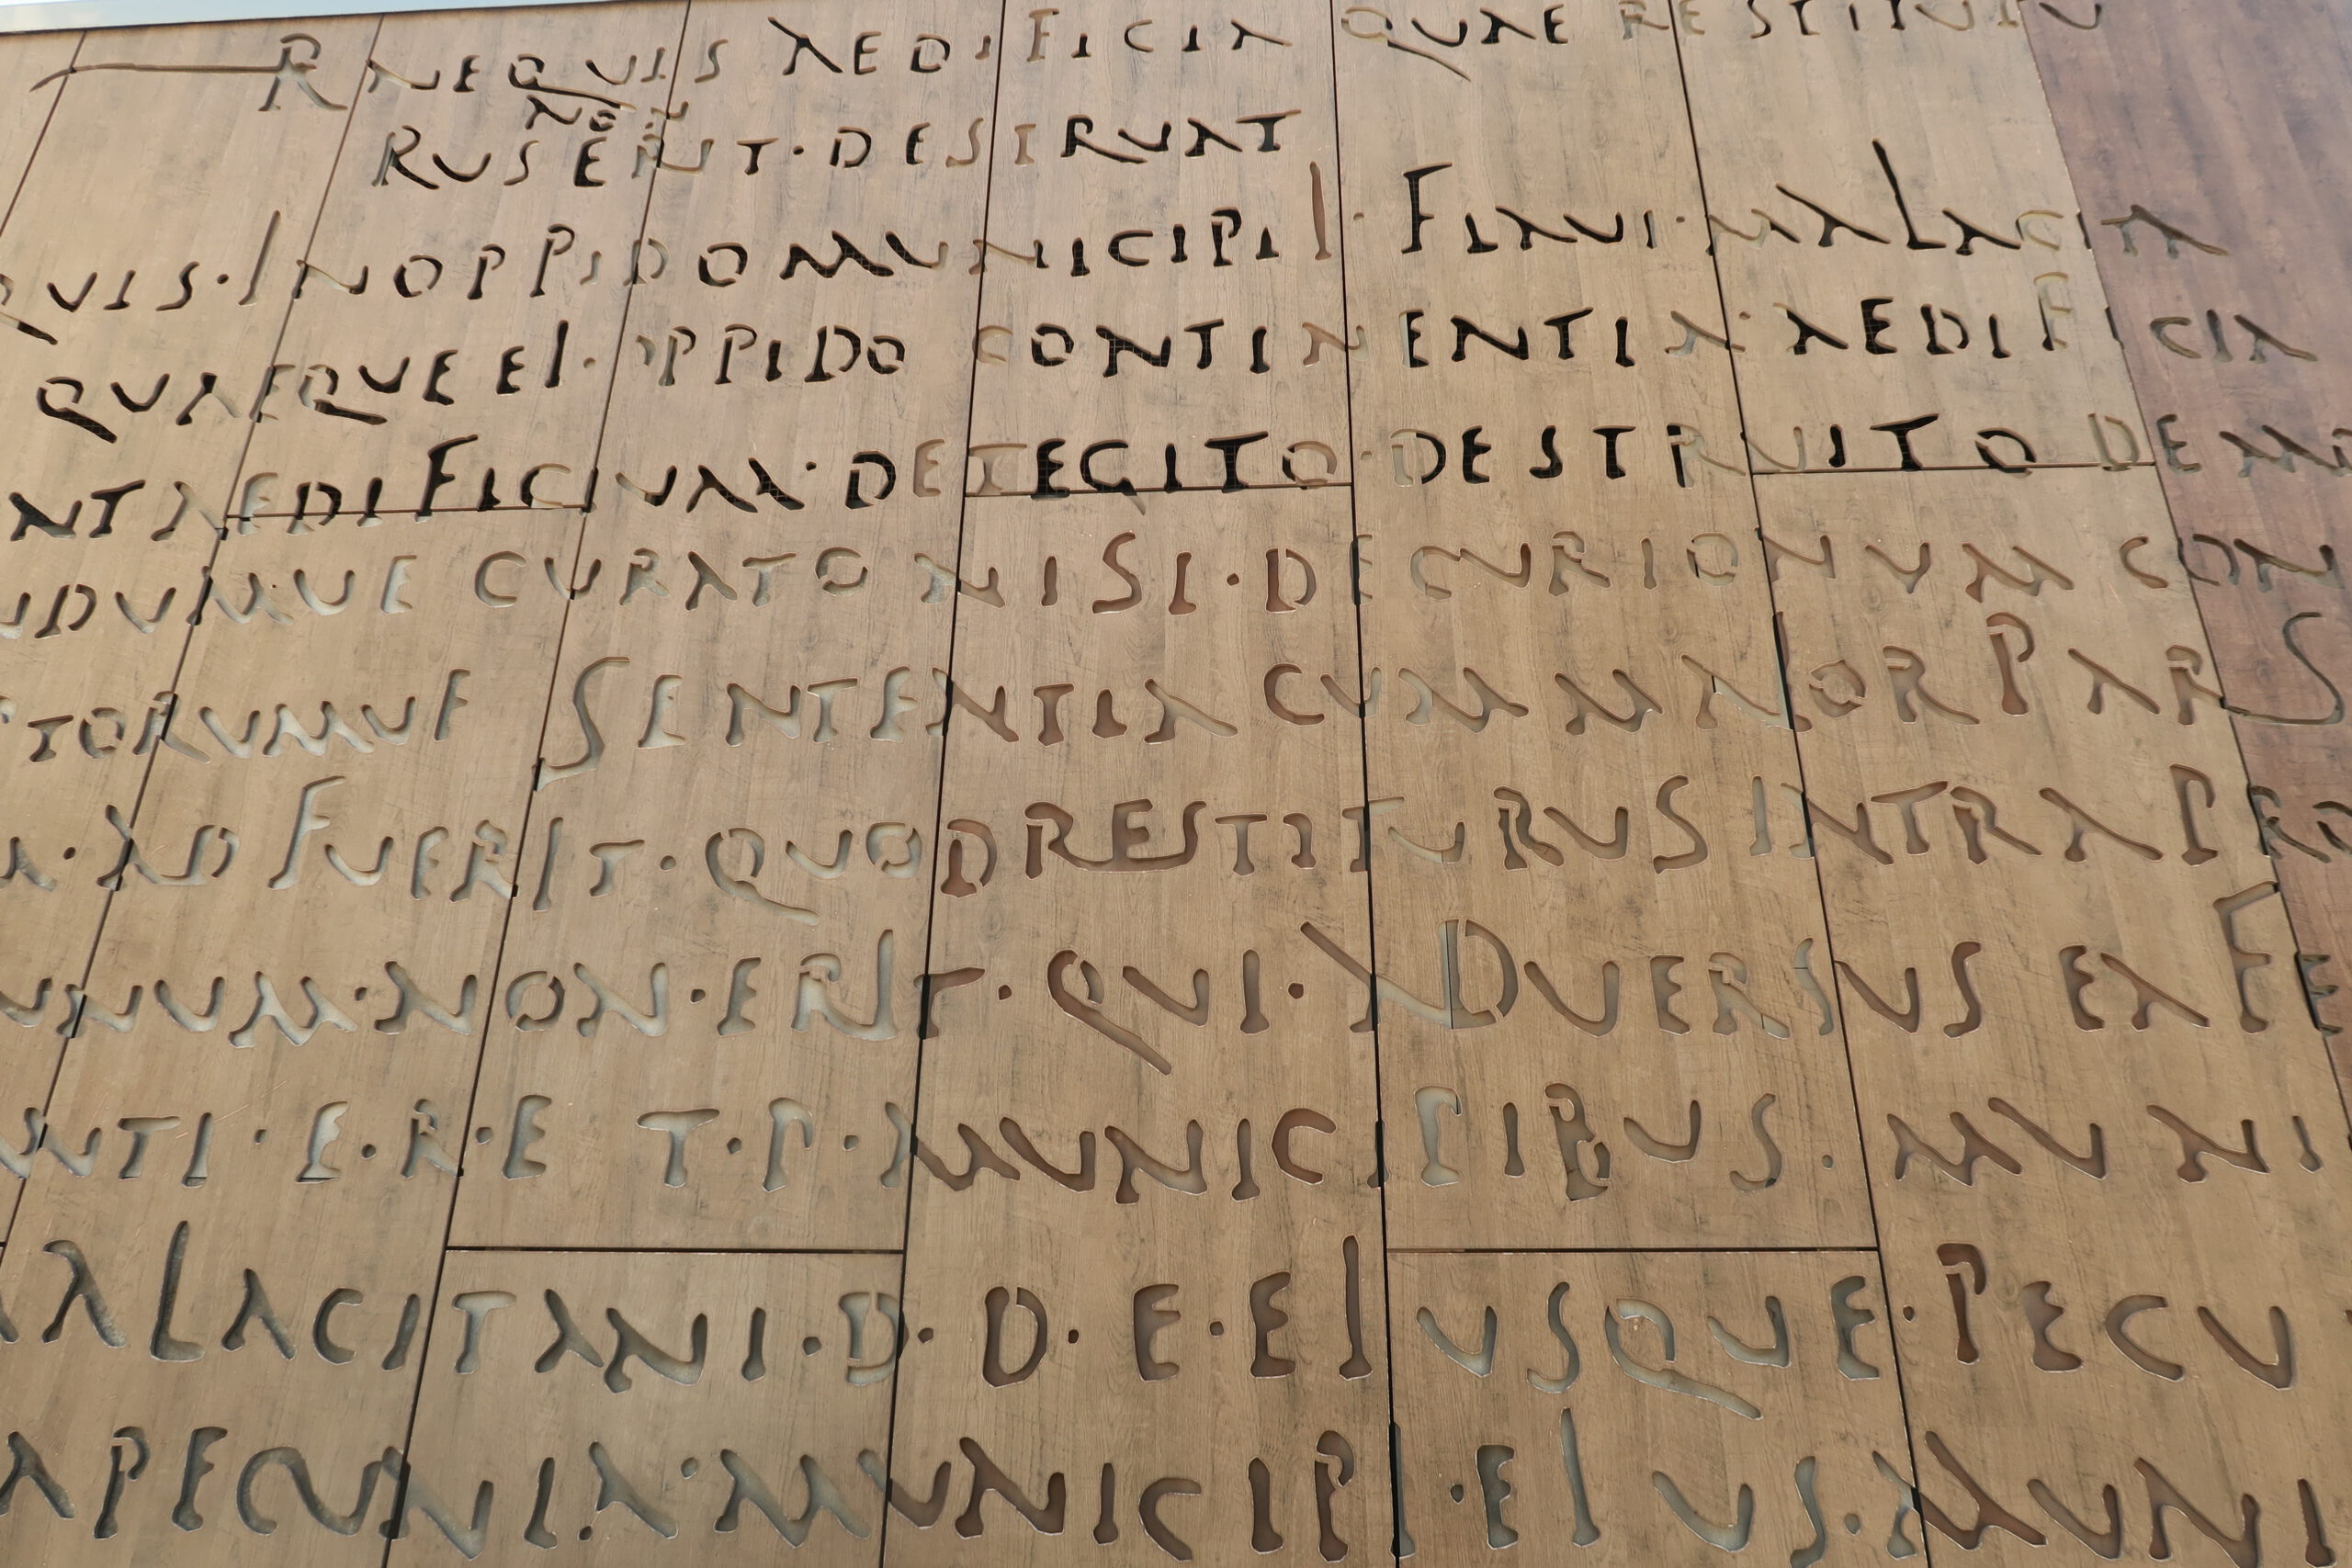 R NEQUIS AEDIFICIA QUAE RESTITUTU
NON
RUS ERIT · DESTRUAT
QUIS · IN OPPIDO MUNICIPII · FLAVI · MALACITA
QUAEQUE EI · OPPIDO CONTINENTIA · AEDIFICIA
NT AEDIFICIUM · DETEGITO · DESTRUITO DEMO
UDUMUE CURATO NISI · DECURIONUM CON
TORUMUE SENTENTIA CUM MAIOR PARS
AD FUERIT · QUOD RESTITURUS INTRA PRO
UMUM · NON · ERIT · QUI · ADUERSUS EA FE
NTI · E · R · E T · P · MUNICIPIBUS · MUNI
ALACITANI · D · D · E · EIUSQUE · PECU
A PECUNIA · MUNICIPI · EIUS · MUNI